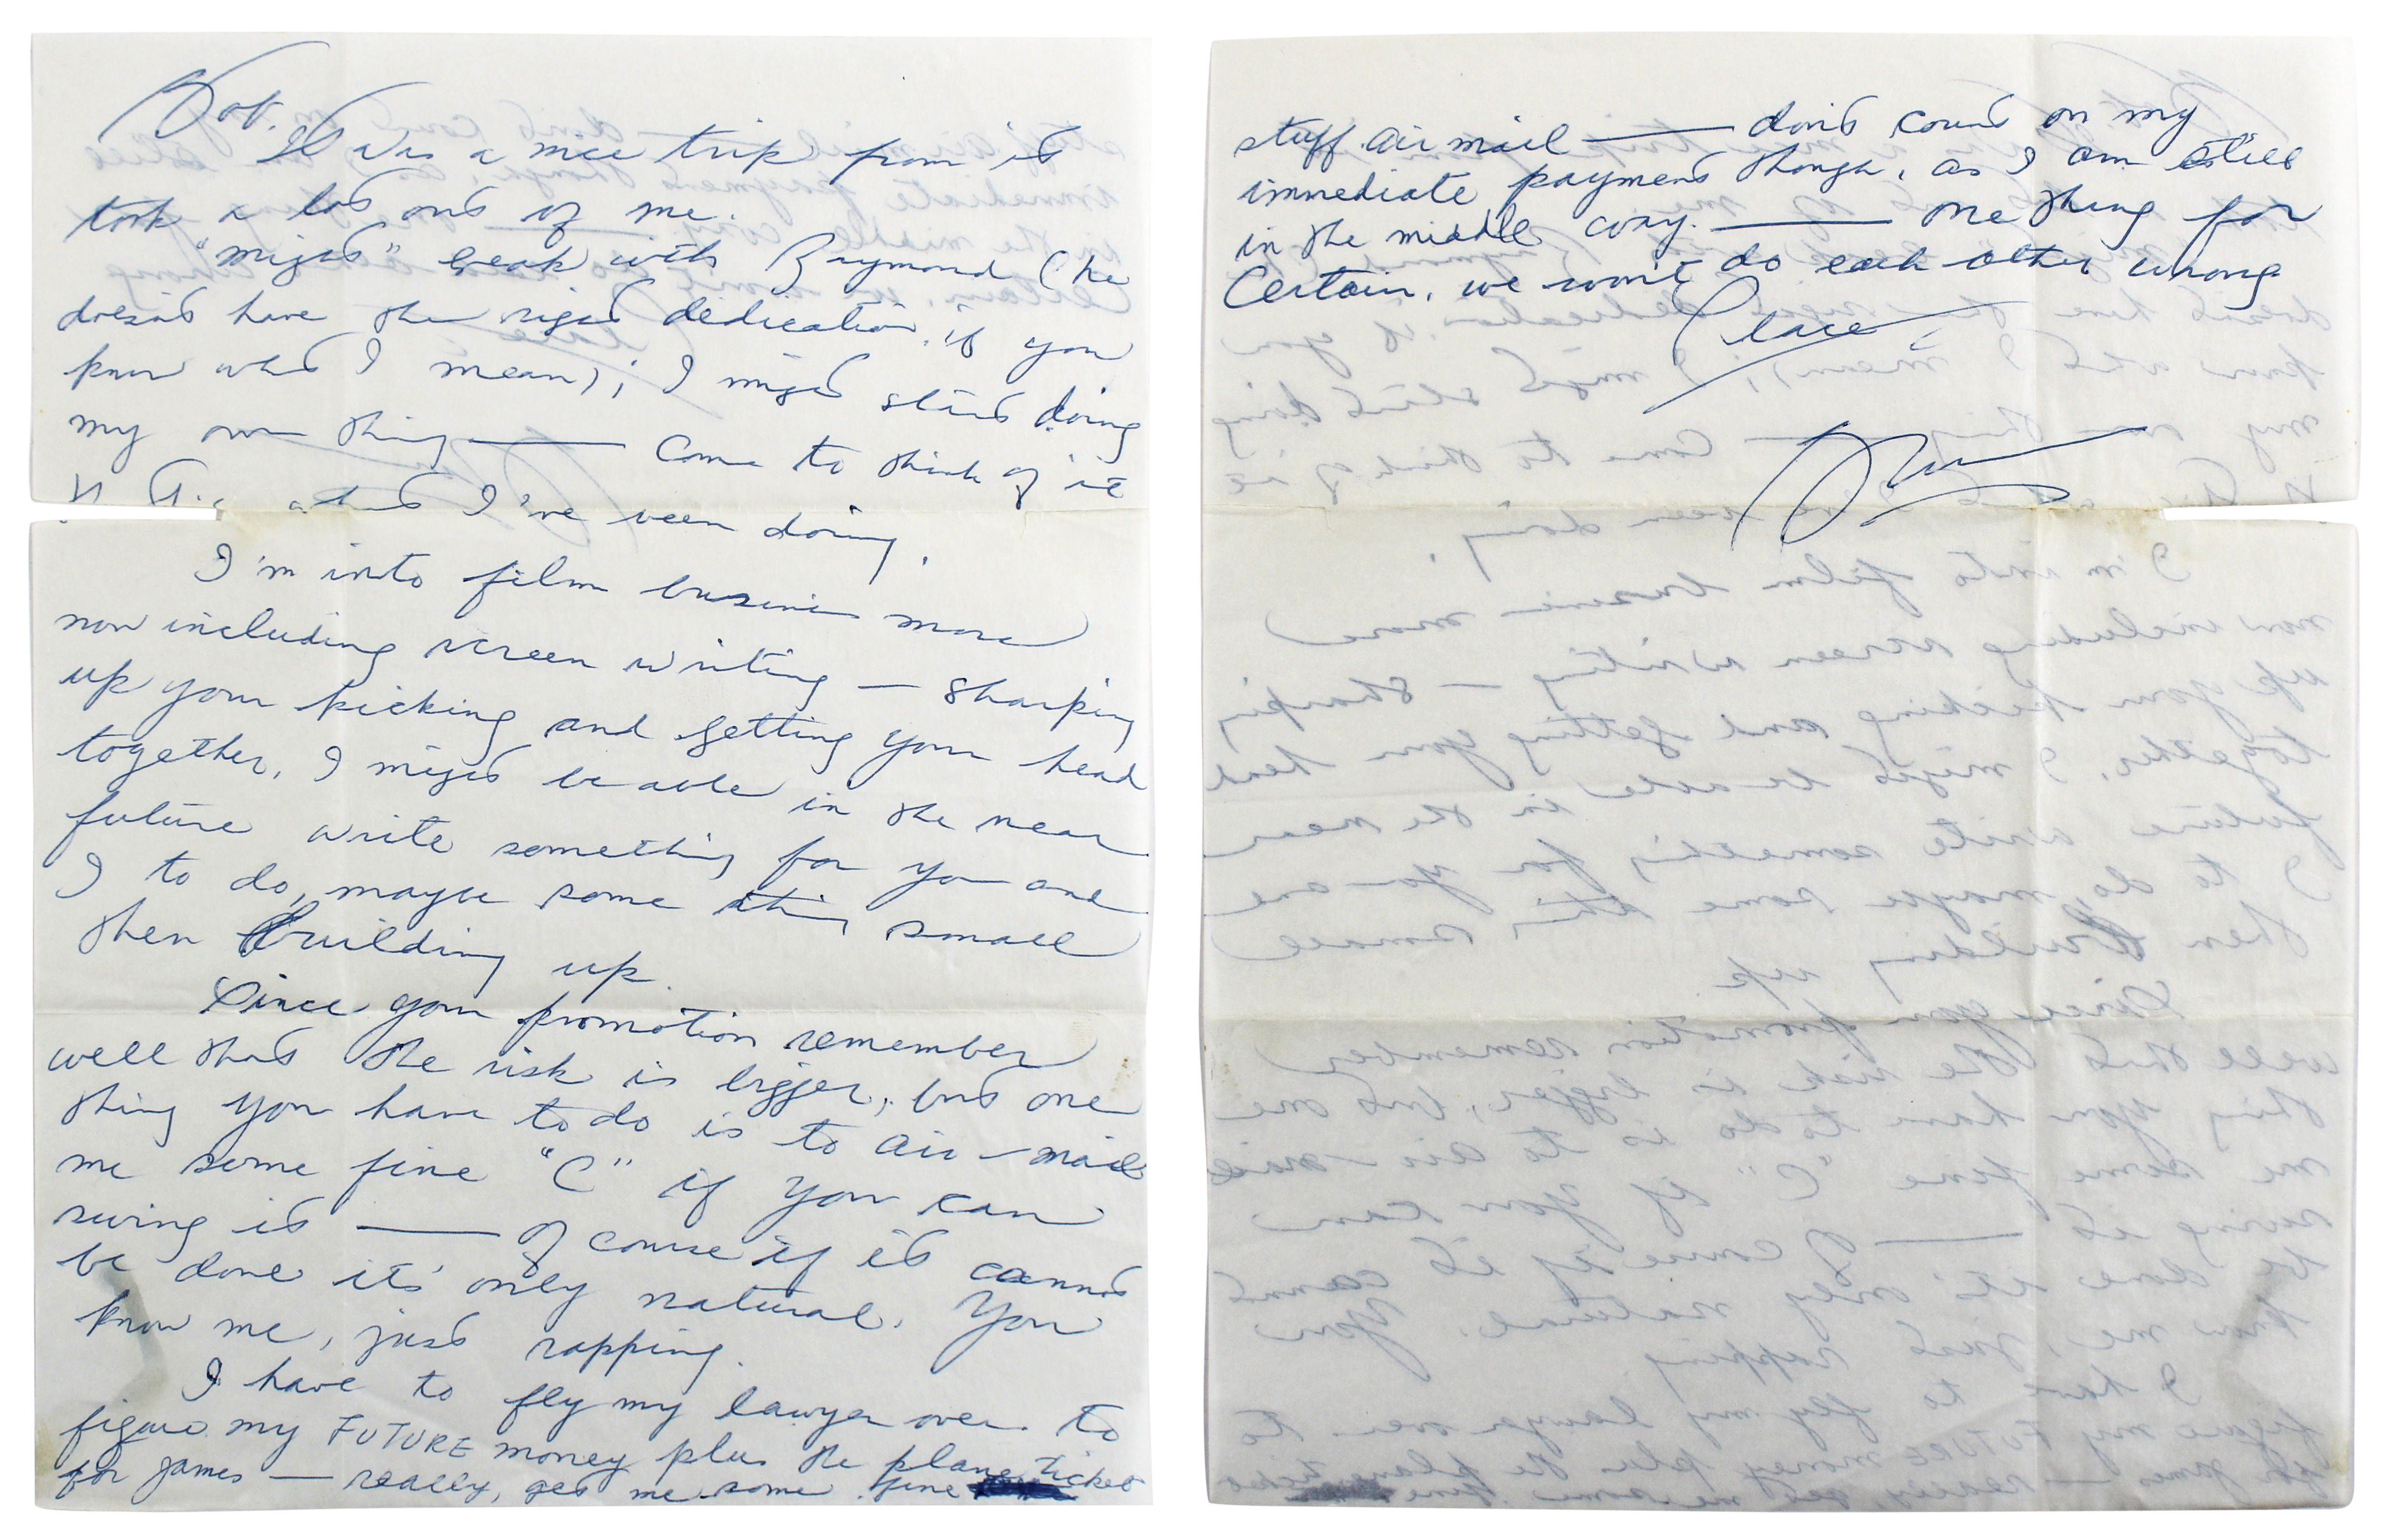 Bob.
It was a nice trip from it
took a lot out of me.
"might" break with Raymond (he
doesn't have the right dedication, if you
know what I mean); I might start doing
my own thing — Come to think of it
what I've been doing.
I'm into film business more
now including screen writing — sharping
up your kicking and getting your head
together, I might be able in the near
future write something for you and
I to do, maybe some thing small
then building up.
Since your promotion remember
well that the risk is bigger, but one
thing you have to do is to air-mail
me some fine "C" if you can
swing it — Of course if it cannot
be done it's only natural. You
know me, just rapping.
I have to fly my lawyer over to
figure my FUTURE money plus the plane ticket
for James — really, get me some fine
stuff air mail — don't count on my
immediate payment though, as I am still
in the middle way. — One thing for
Certain, we won't do each other wrong
Peace